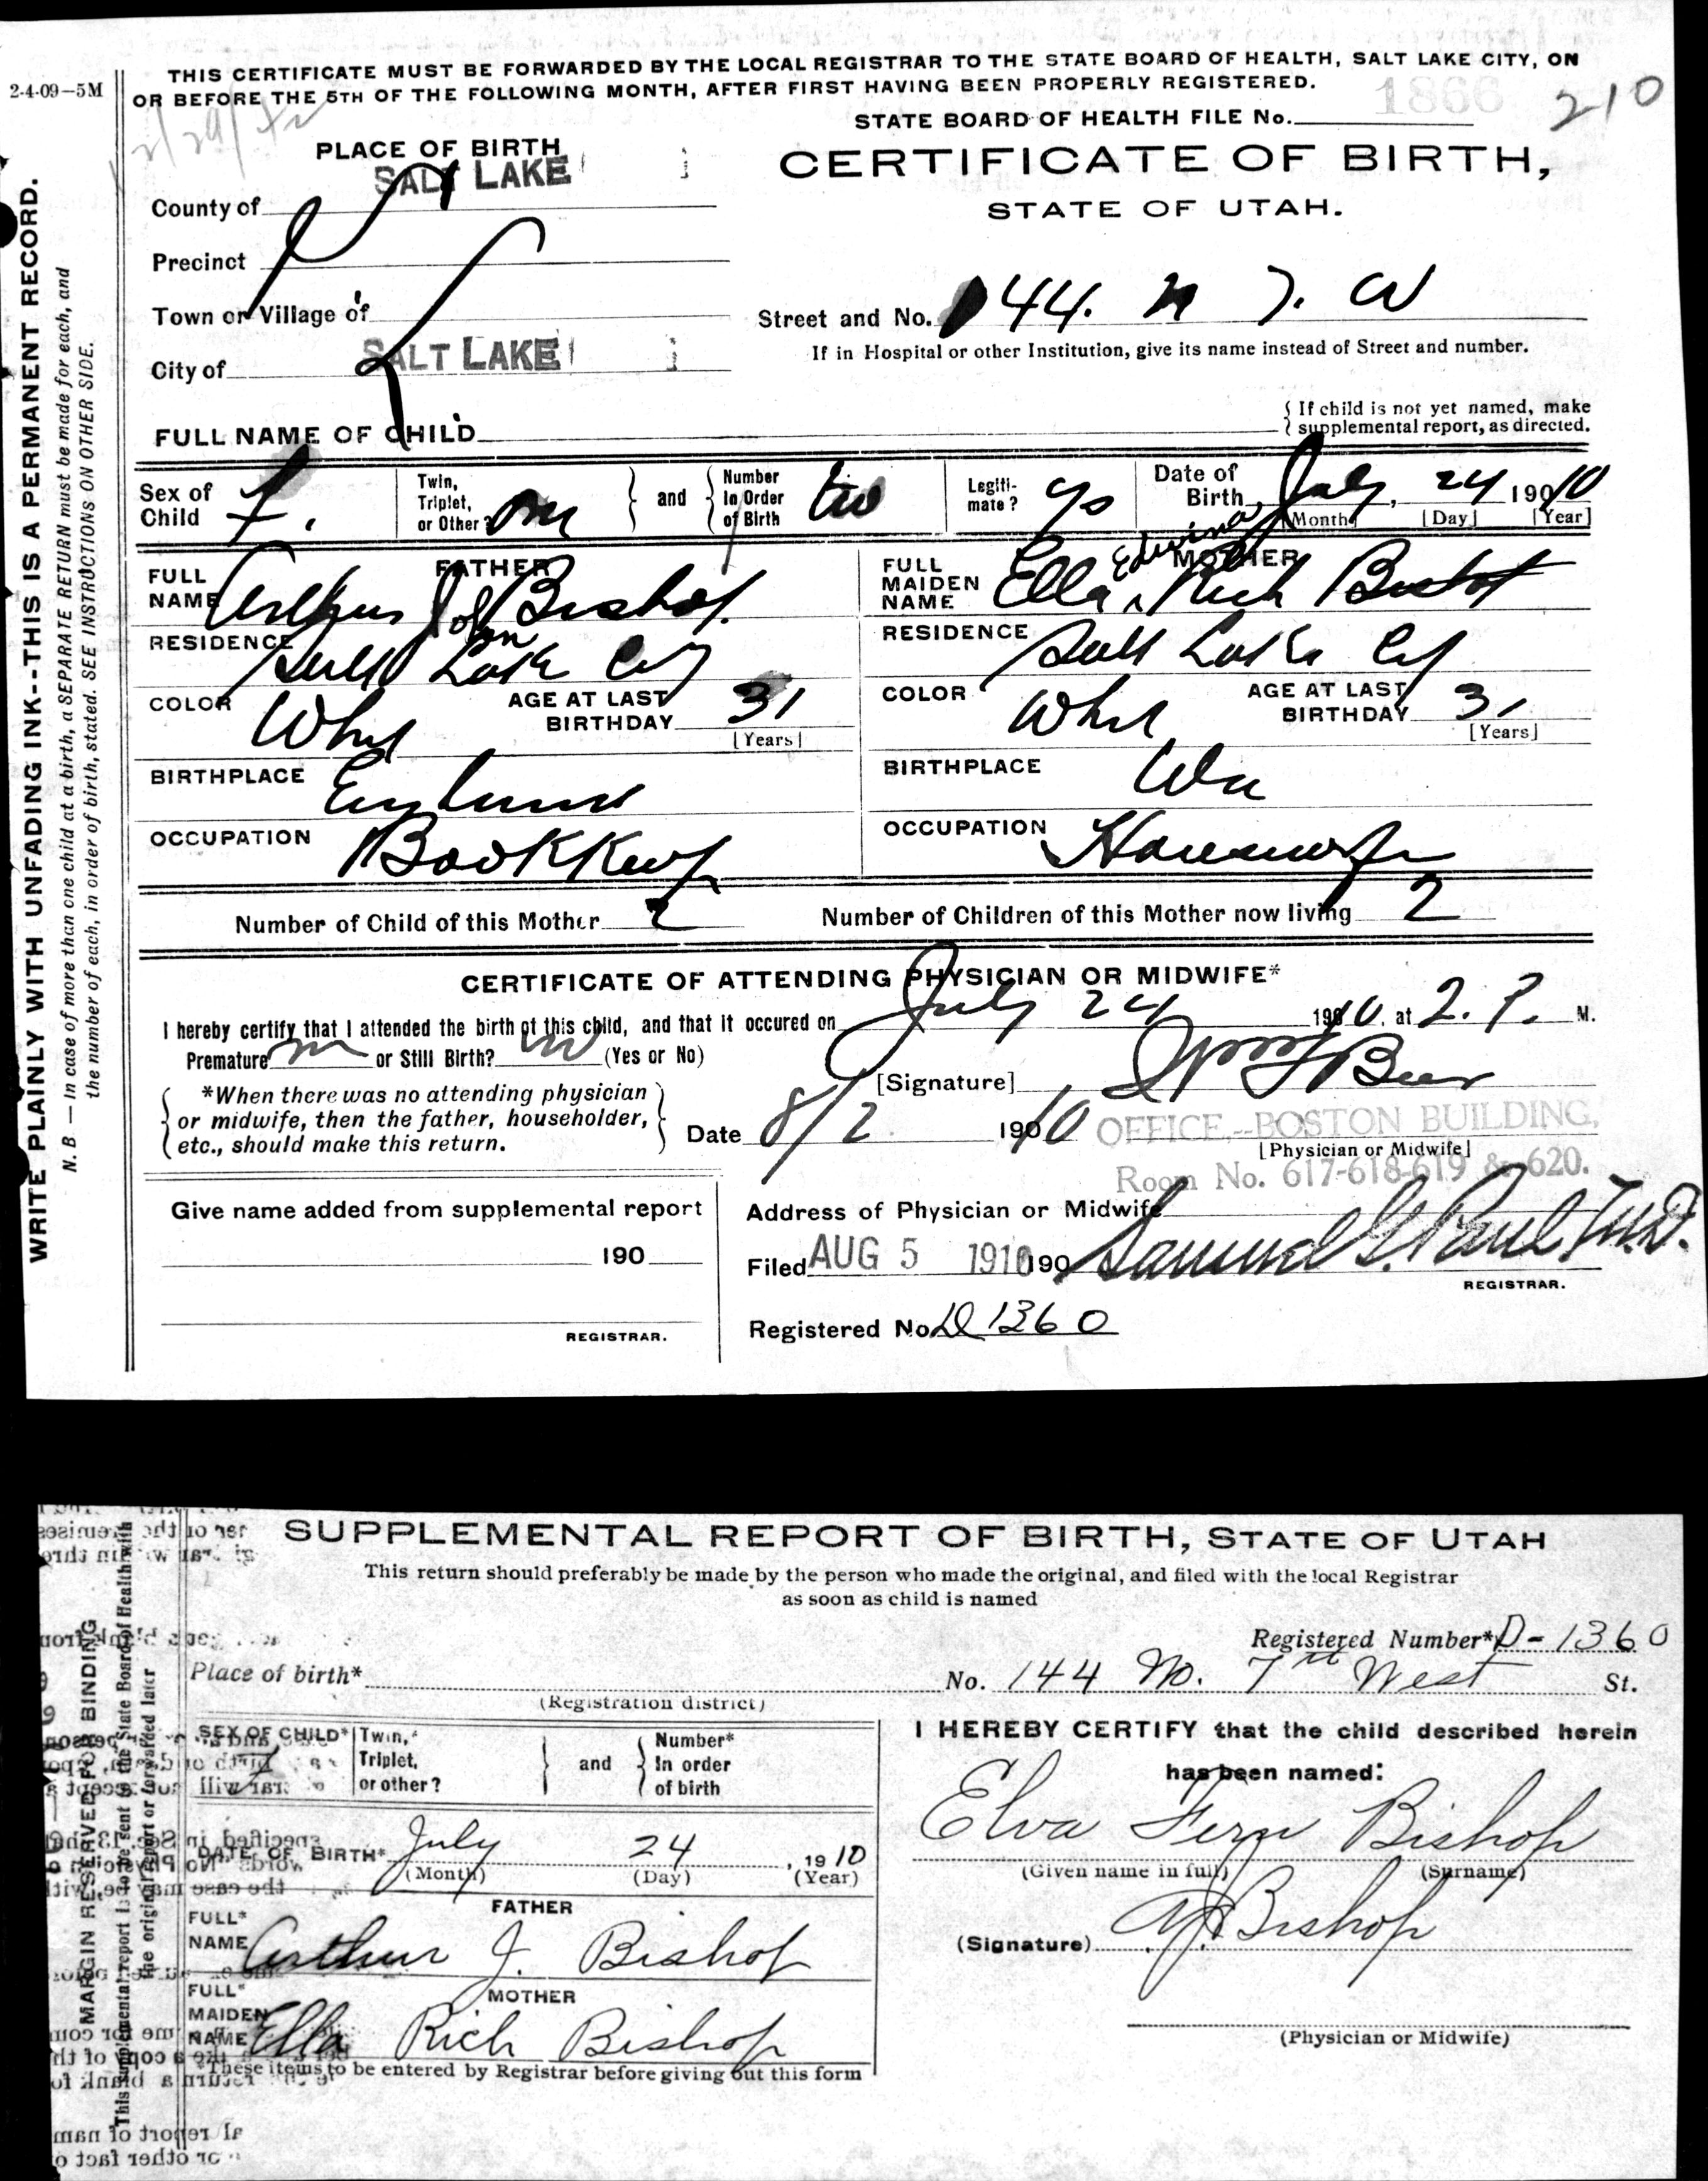 THIS CERTIFICATE MUST BE FORWARDED BY THE LOCAL REGISTRAR TO THE STATE BOARD OF HEALTH, SALT LAKE CITY, ON
OR BEFORE THE 5TH OF THE FOLLOWING MONTH, AFTER FIRST HAVING BEEN PROPERLY REGISTERED.
2-4-09-5M
1866
210
STATE BOARD OF HEALTH FILE No.
PLACE OF BIRTH
CERTIFICATE OF BIRTH,
STATE OF UTAH.
County of SALT LAKE
Precinct
Town or Village of
Street and No. 144. n 7. W
If in Hospital or other Institution, give its name instead of Street and number.
City of SALT LAKE
FULL NAME OF CHILD
{ If child is not yet named, make
{ supplemental report, as directed.
Sex of Child F.
Twin, Triplet, or Other?
and
Number In Order of Birth two
Legiti-mate? ys
Date of Birth July, 24 1910
[Month] [Day] [Year]
FATHER
FULL NAME Arthur John Bishop.
RESIDENCE Salt Lake City
COLOR
AGE AT LAST BIRTHDAY 31
[Years]
BIRTHPLACE England
OCCUPATION Bookkeep
MOTHER
FULL MAIDEN NAME Ella Edwina Rich Bishop
RESIDENCE Salt Lake City
COLOR
AGE AT LAST BIRTHDAY 31
[Years]
BIRTHPLACE
OCCUPATION Housewife
Number of Child of this Mother 2
Number of Children of this Mother now living 2
CERTIFICATE OF ATTENDING PHYSICIAN OR MIDWIFE*
I hereby certify that I attended the birth of this child, and that it occured on July 24 1910. at 2. P. M.
Premature or Still Birth? (Yes or No)
*When there was no attending physician
or midwife, then the father, householder,
etc., should make this return.
[Signature]
Date 8/2 1910
OFFICE--BOSTON BUILDING,
[Physician or Midwife]
Room No. 617-618-619 & 620.
Give name added from supplemental report
190
REGISTRAR.
Address of Physician or Midwife
Filed AUG 5 1910 190 Samuel G. Paul M.D.
REGISTRAR.
Registered No. D 1360
WRITE PLAINLY WITH UNFADING INK--THIS IS A PERMANENT RECORD.
N. B. — In case of more than one child at a birth, a SEPARATE RETURN must be made for each, and
the number of each, in order of birth, stated. SEE INSTRUCTIONS ON OTHER SIDE.
SUPPLEMENTAL REPORT OF BIRTH, STATE OF UTAH
This return should preferably be made by the person who made the original, and filed with the local Registrar
as soon as child is named
Registered Number* D-1360
Place of birth*
No. 144 No. 7th West St.
(Registration district)
SEX OF CHILD*
Twin, Triplet, or other?
and
Number* In order of birth
DATE OF BIRTH* July 24, 1910
(Month) (Day) (Year)
FATHER
FULL* NAME Arthur J. Bishop
MOTHER
FULL* MAIDEN NAME Ella Rich Bishop
*These items to be entered by Registrar before giving out this form
I HEREBY CERTIFY that the child described herein
has been named:
Elva Fern Bishop
(Given name in full) (Surname)
(Signature) A J Bishop
(Physician or Midwife)
MARGIN RESERVED FOR BINDING
This supplemental report is to be sent to the State Board of Health with
the original report or forwarded later